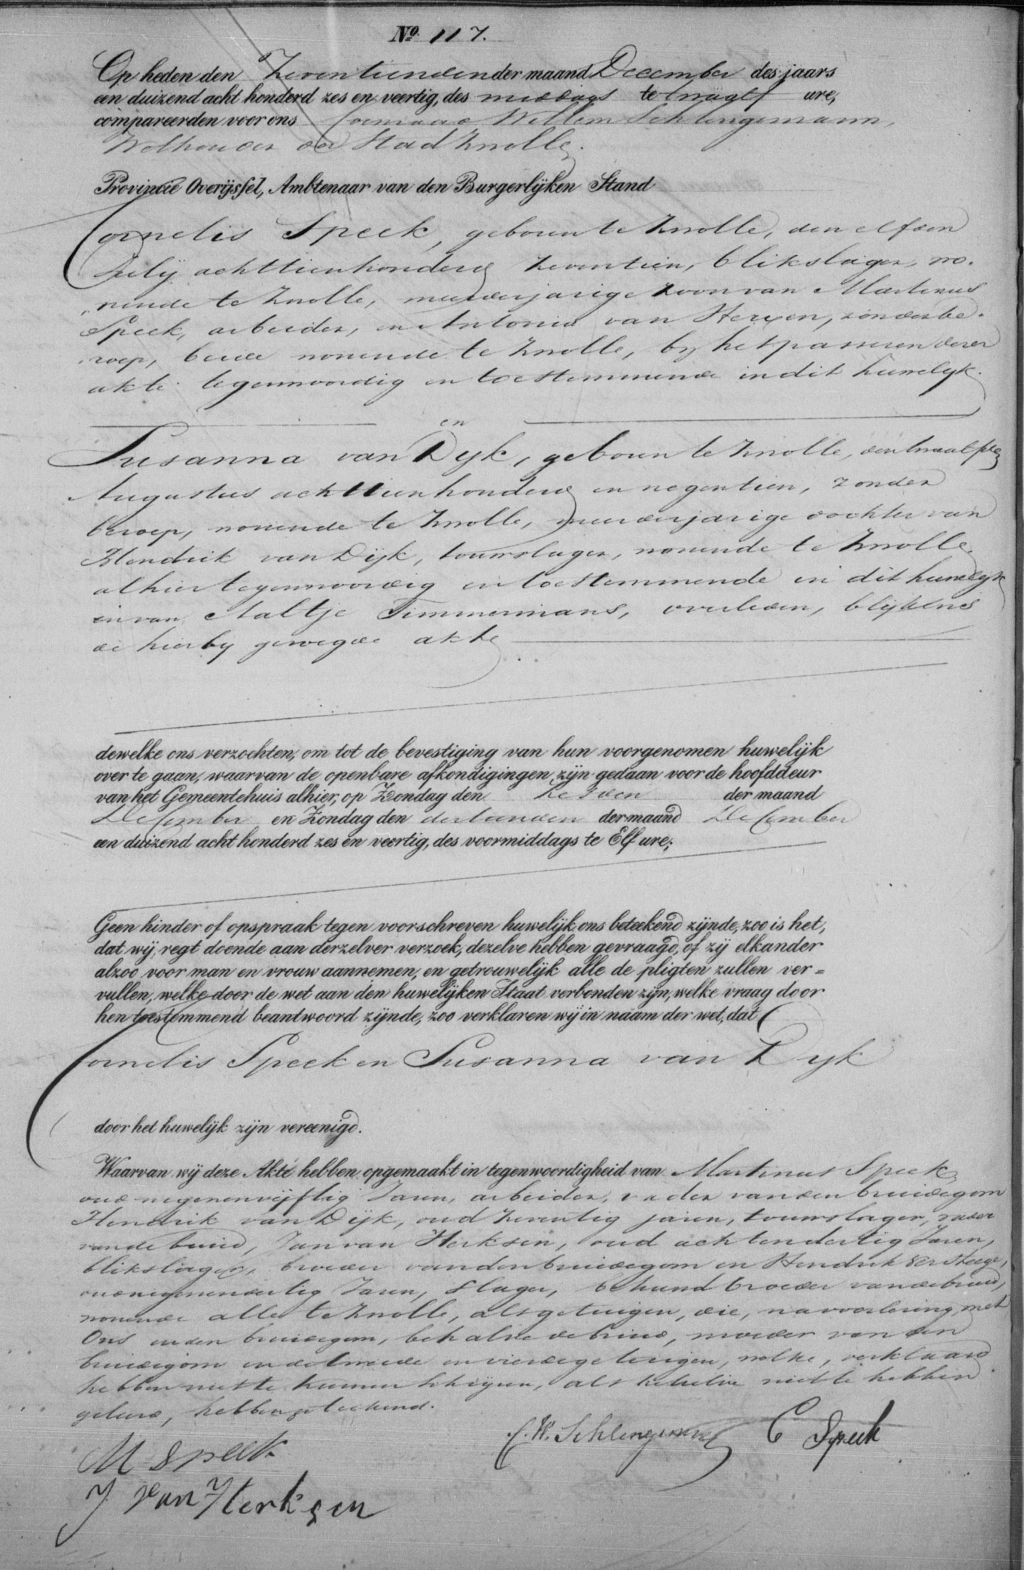 No. 117.
Op heden den Zeventienden der maand December des jaars
een duizend acht honderd zes en veertig, des middags te twaalf ure,
compareerden voor ons Coenraad Willem Schlingemann,
Wethouder der Stad Zwolle.
Provincie Overijssel, Ambtenaar van den Burgerlijken Stand
Cornelis Speek, geboren te Zwolle, den elfden
July achttienhonderd zeventien, blikslager, wo-
nende te Zwolle, meerderjarige zoon van Martinus
Speek, arbeider, en Antonia van Herxen, zonder be-
roep, beide wonende te Zwolle, by het passeren dezer
akte tegenwoordig en toestemmende in dit huwelijk.
en
Susanna van Dyk, geboren te Zwolle, den twaalfden
Augustus achttienhonderd en negentien, zonder
beroep, wonende te Zwolle, meerderjarige dochter van
Hendrik van Dijk, touwslager, wonende te Zwolle
alhier tegenwoordig en toestemmende in dit huwelyk
en van Aaltje Timmermans, overleden, blijkens
de hierby gevoegde akte
dewelke ons verzochten, om tot de bevestiging van hun voorgenomen huwelijk
over te gaan, waarvan de openbare afkondigingen zijn gedaan voor de hoofddeur
van het Gemeentehuis alhier, op Zondag den zesden der maand
December en Zondag den dertienden der maand December
een duizend acht honderd zes en veertig, des voormiddags te Elf ure;
Geen hinder of opspraak tegen voorschreven huwelijk ons beteekend zijnde, zoo is het,
dat wij, regt doende aan derzelver verzoek, dezelve hebben gevraagd, of zij elkander
alzoo voor man en vrouw aannemen, en getrouwelijk alle de pligten zullen ver-
vullen, welke door de wet aan den huwelijken Staat verbonden zijn, welke vraag door
hen toestemmend beantwoord zijnde, zoo verklaren wij in naam der wet, dat
Cornelis Speek en Susanna van Dyk
door het huwelijk zijn vereenigd.
Waarvan wij deze Akte hebben opgemaakt in tegenwoordigheid van Martinus Speek
oud negenenvijftig Jaren, arbeider, vader van den bruidegom
Hendrik van Dijk, oud zeventig jaren, touwslager, vader
van de bruid, Jan van Herksen, oud achtendertig Jaren,
blikslager, broeder van den bruidegom en Hendrik
oud negenendertig Jaren, slager, behuwd broeder van de bruid,
wonende alle te Zwolle, als getuigen, die, na voorlezing, met
Ons en den bruidegom, behalve de bruid, moeder van den
bruidegom en de tweede en vierde getuigen, welke, verklaard
hebben niet te kunnen schrijven, als hetzelve niet te hebben
geleerd, hebben geteekend.
C. W. Schlingemann C Speek
M Speek
J van Herksen